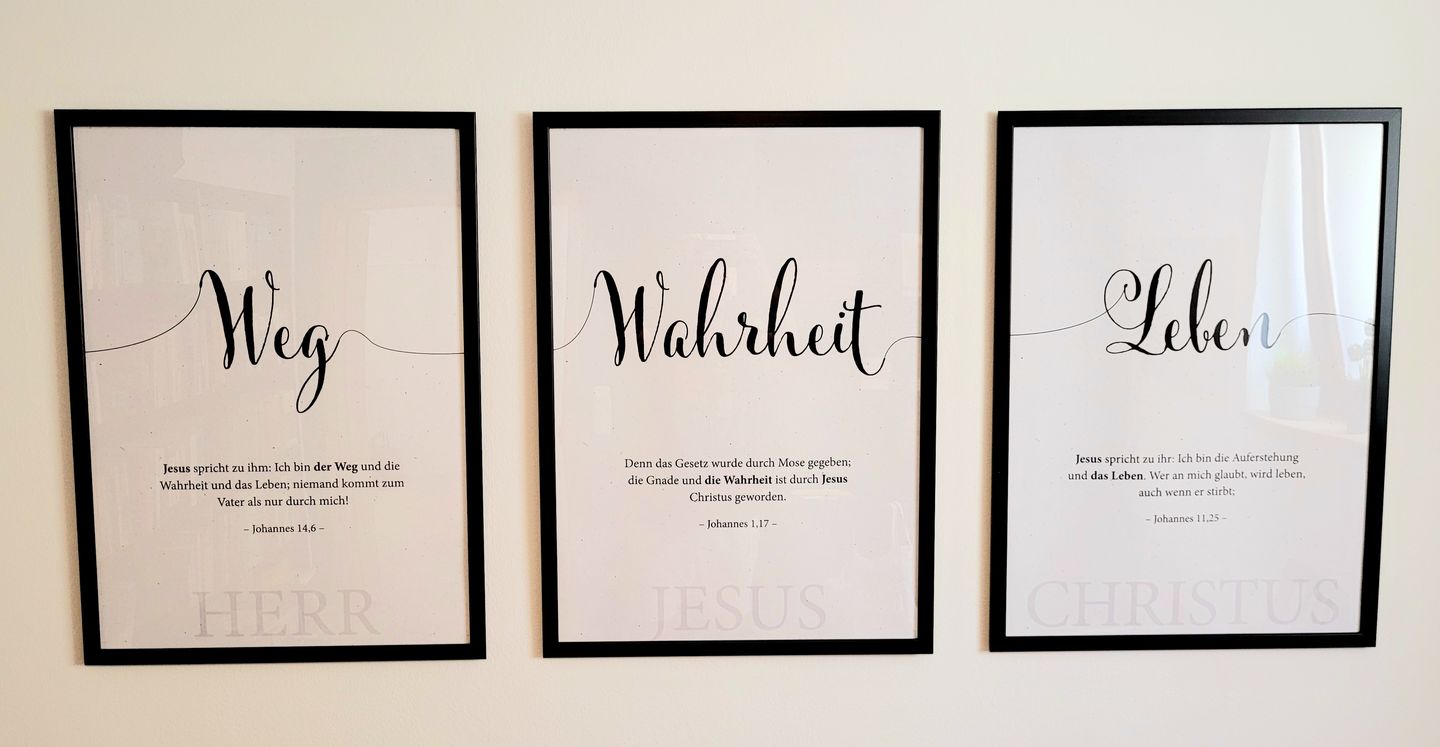 Weg
Jesus spricht zu ihm: Ich bin der Weg und die
Wahrheit und das Leben; niemand kommt zum
Vater als nur durch mich!
– Johannes 14,6 –
HERR
Wahrheit
Denn das Gesetz wurde durch Mose gegeben;
die Gnade und die Wahrheit ist durch Jesus
Christus geworden.
– Johannes 1,17 –
JESUS
Leben
Jesus spricht zu ihr: Ich bin die Auferstehung
und das Leben. Wer an mich glaubt, wird leben,
auch wenn er stirbt;
– Johannes 11,25 –
CHRISTUS